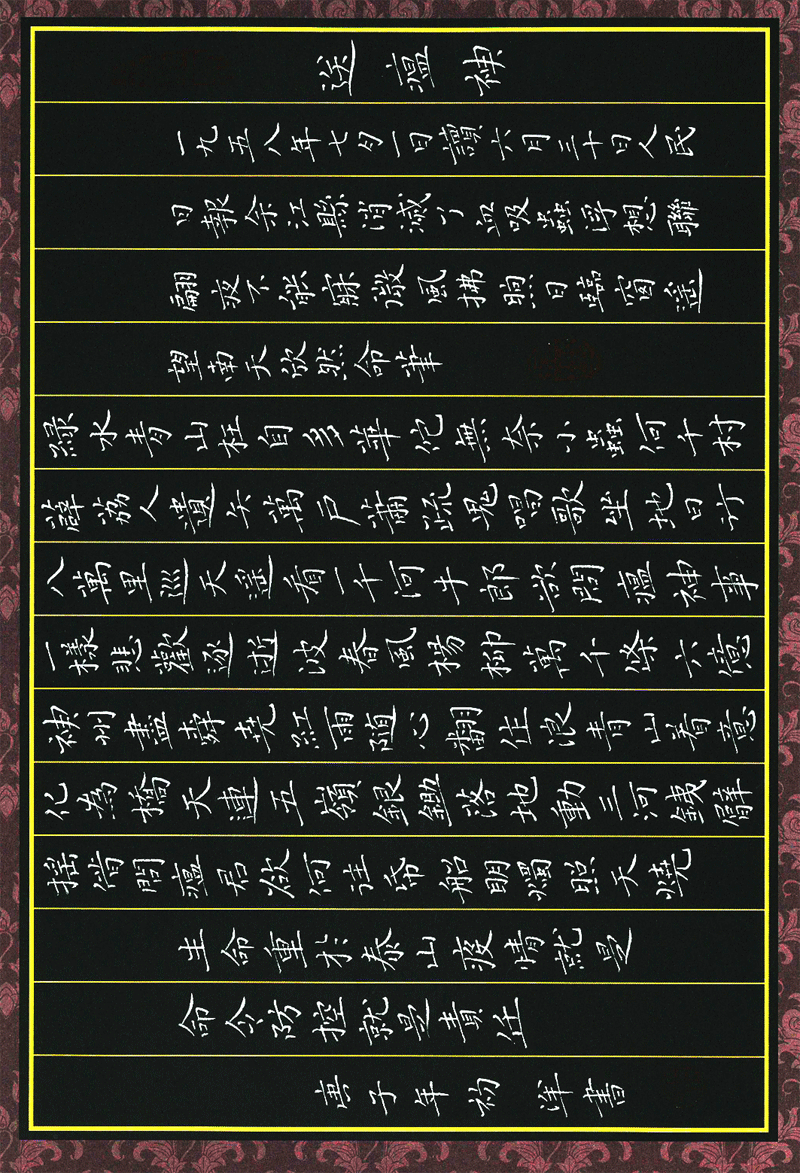 送瘟神
一九五八年七月一日讀六月三十日人民
日報余江縣消滅了血吸蟲浮想聯
翩夜不能寐微風拂煦日臨窗遥
望南天欣然命筆
緑水青山枉自多華佗無奈小蟲何千村
薜荔人遺矢萬户蕭疏鬼唱歌坐地日行
八萬里巡天遥看一千河牛郎欲問瘟神事
一樣悲歡逐逝波春風楊柳萬千條六億
神州盡舜堯紅雨随心翻作浪青山着意
化為橋天連五嶺銀鋤落地動三河鐵臂
摇借問瘟君欲何往帋船明燭照天燒
生命重於泰山疫情就是
命令防控就是責任
庚子年初 洋書